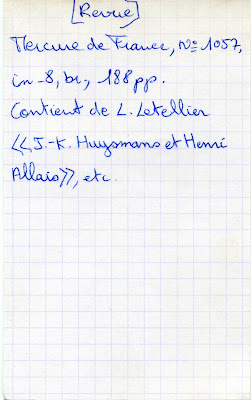 [Revue]
Mercure de France, N° 1057,
in-8, br., 188 pp.
Contient de L. Letellier
«J.-K. Huysmans et Henri
Allais», etc.